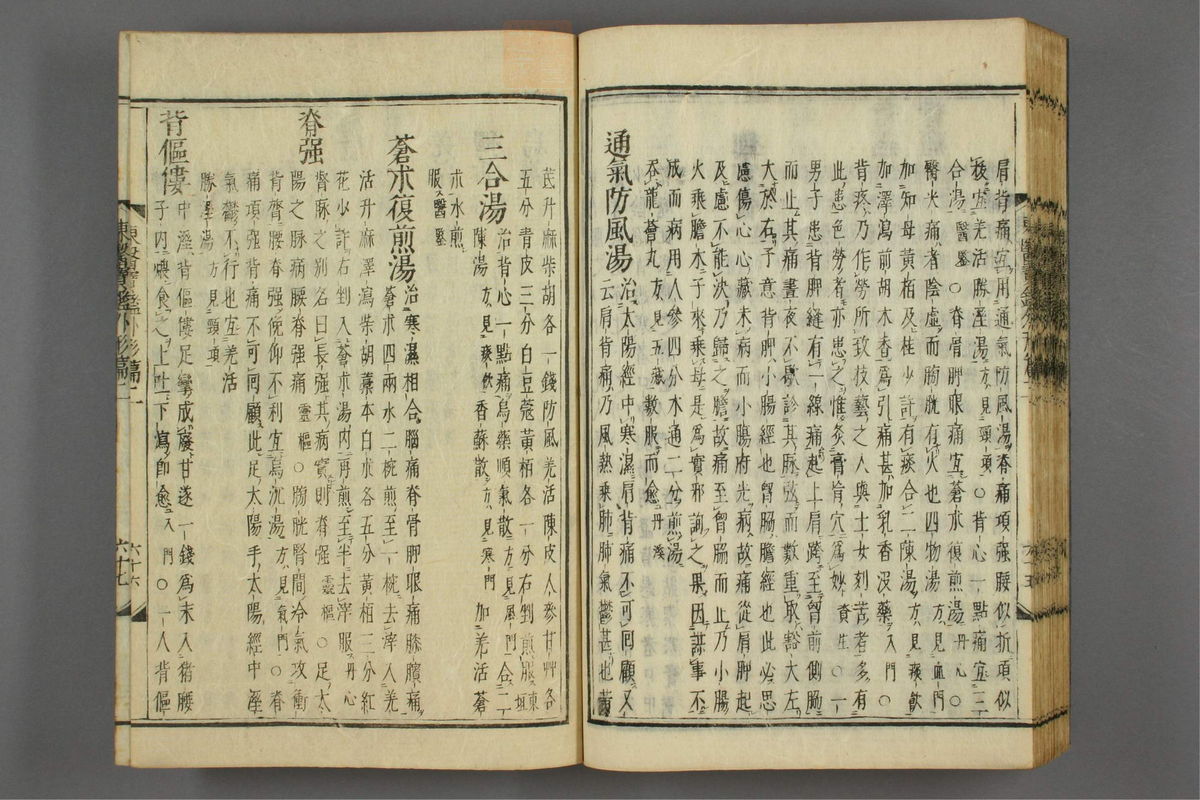 肩背痛宜用通氣防風湯脊痛項強腰似折項似
拔宜羌活勝溼湯方見頭項○背心一點痛宜三
合湯醫鑒○脊骨胛眼痛宜蒼朮復煎湯丹心○
腎火痛者陰虛而膀胱有火也四物湯方見血門
加知母黃栢及桂少許有痰合二陳湯方見痰飲
加澤瀉前胡木香爲引痛甚加乳香沒藥入門○
背疼乃作勞所致技藝之人與士女刻苦者多有
此患色勞者亦患之惟灸膏肓穴爲妙資生○一
男子患背胛縫有一線痛起上肩跨至胸前側脇
而止其痛晝夜不歇診其脉弦而數重取豁大左
大於右予意背胛小腸經也胸脇膽經也此必思
慮傷心心藏未病而小腸府先病故痛從肩胛起
及慮不能決乃歸之膽故痛至胸脇而止乃小腸
火乘膽木子來乘母是爲實邪詢之果因謀事不
成而病用人參四分木通二分煎湯
吞龍薈丸方見五藏數服而愈丹溪
通氣防風湯治太陽經中寒濕肩背痛不可回顧又
云肩背痛乃風熱乘肺肺氣鬱甚也黃
芪升麻柴胡各一錢防風羌活陳皮人參甘艸各
五分青皮三分白豆蔲黃栢各一分右剉煎服東垣
三合湯治背心一點痛烏藥順氣散方見風門合二
陳湯方見痰飲香蘇散方見寒門加羌活蒼
朮水煎
服醫鑒
蒼朮復煎湯治寒濕相合腦痛脊骨胛眼痛膝臏痛
蒼朮四兩水二椀煎至一椀去滓入羌
活升麻澤瀉柴胡藁本白朮各五分黃栢三分紅
花少許右剉入蒼朮湯內再煎至半去滓服丹心
脊强
督脉之別名曰長強其病實則脊强靈樞○足太
陽之脉病腰脊强痛靈樞○膀胱腎間冷氣攻衝
背膂腰脊强俛仰不利宜烏沉湯方見氣門○脊
痛項强背痛不可回顧此足太陽手太陽經中溼
氣鬱不行也宜羌活
勝溼湯方見頸項
背傴僂
中溼背傴僂足攣成廢甘遂一錢爲末入猪腰
子內煨食之上吐下瀉卽愈入門○一人背傴
東醫寶鑑外形篇二
六十六
東醫寶鑑外形篇二
六十七